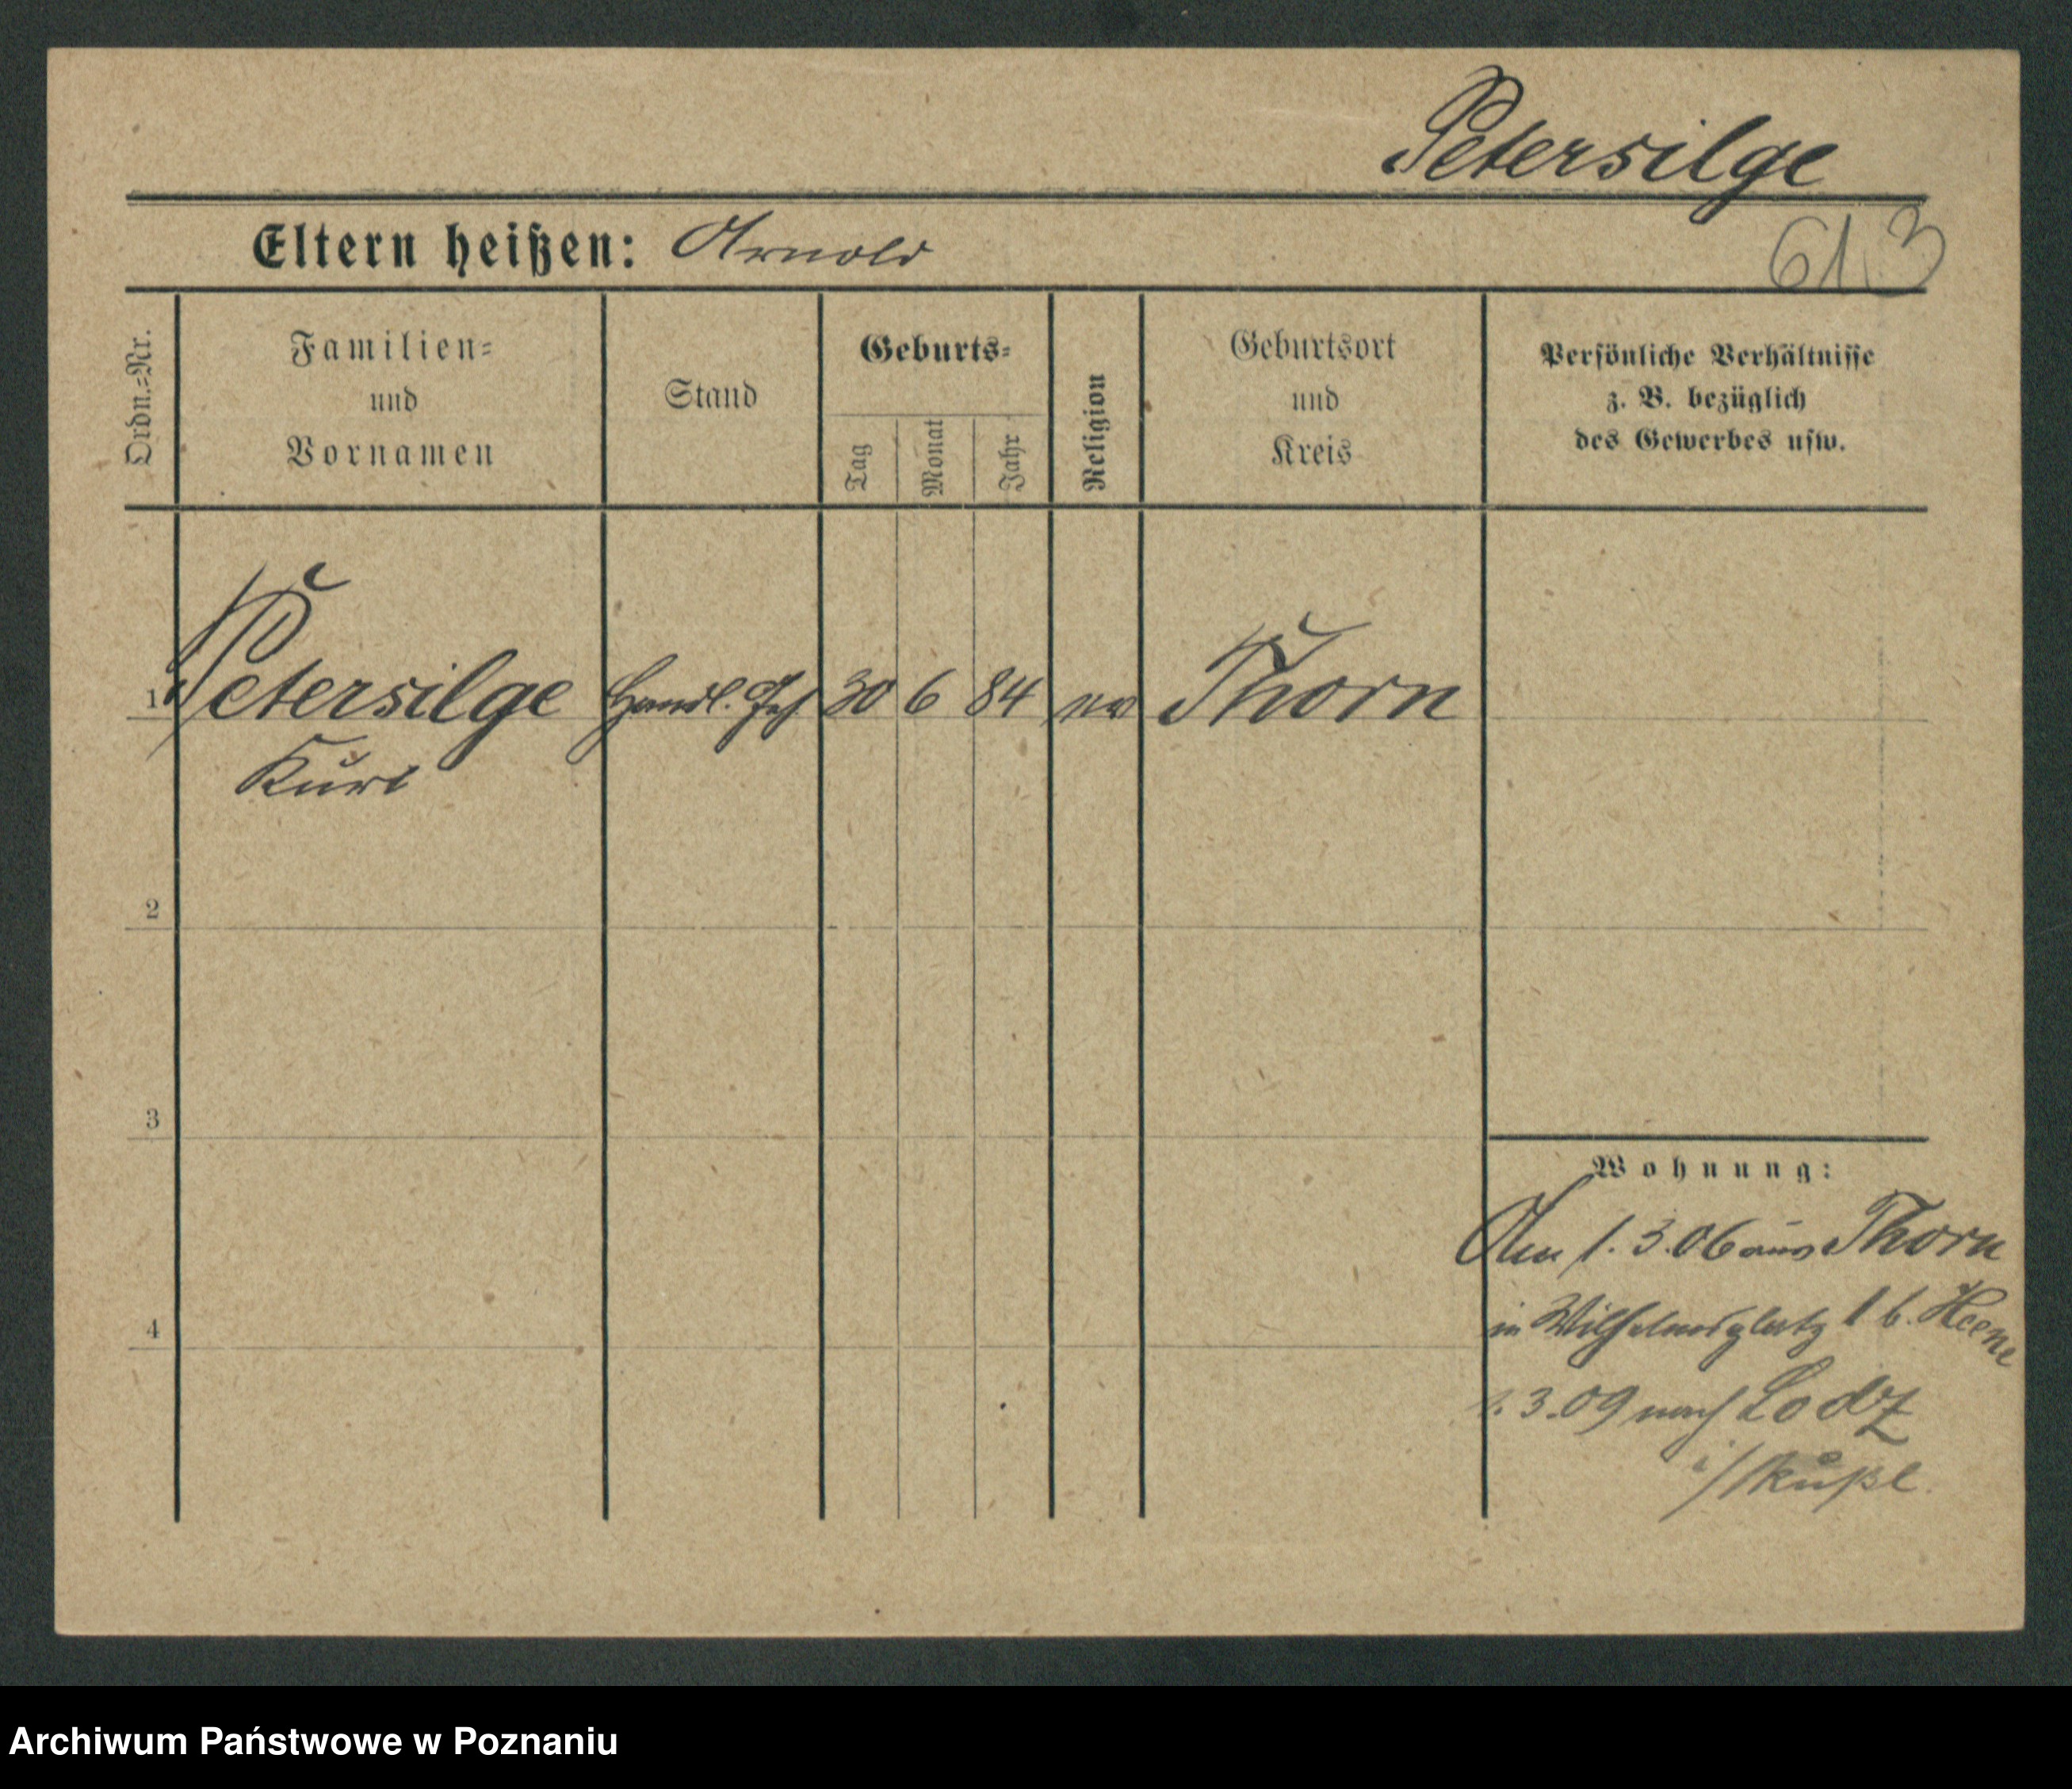 Petersilge
Eltern heißen: Arnold
613
Ordn.=Nr.
Familien=
und
Vornamen
Stand
Geburts=
Tag
Monat
Jahr
Religion
Geburtsort
und
Kreis
Persönliche Verhältnisse
z. B. bezüglich
des Gewerbes usw.
1 Petersilge Handl. Geh. 30 6 84 ev Thorn
Kurt
2
3
4
Wohnung:
Am 1. 3. 06 aus Thorn
in Wilhelmsplatz 1 b. Heene
1. 3. 09 nach Lodz
i/Rußl.
Archiwum Państwowe w Poznaniu